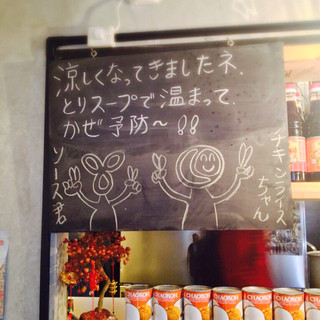 涼しくなってきましたネ、
とりスープで温まって、
かぜ予防〜!!
ソース君
チキンライス
ちゃん
CHAOKOH
CHAOKOH
CHAOKOH
CHAOKOH
CHAOKOH
CHAOKOH